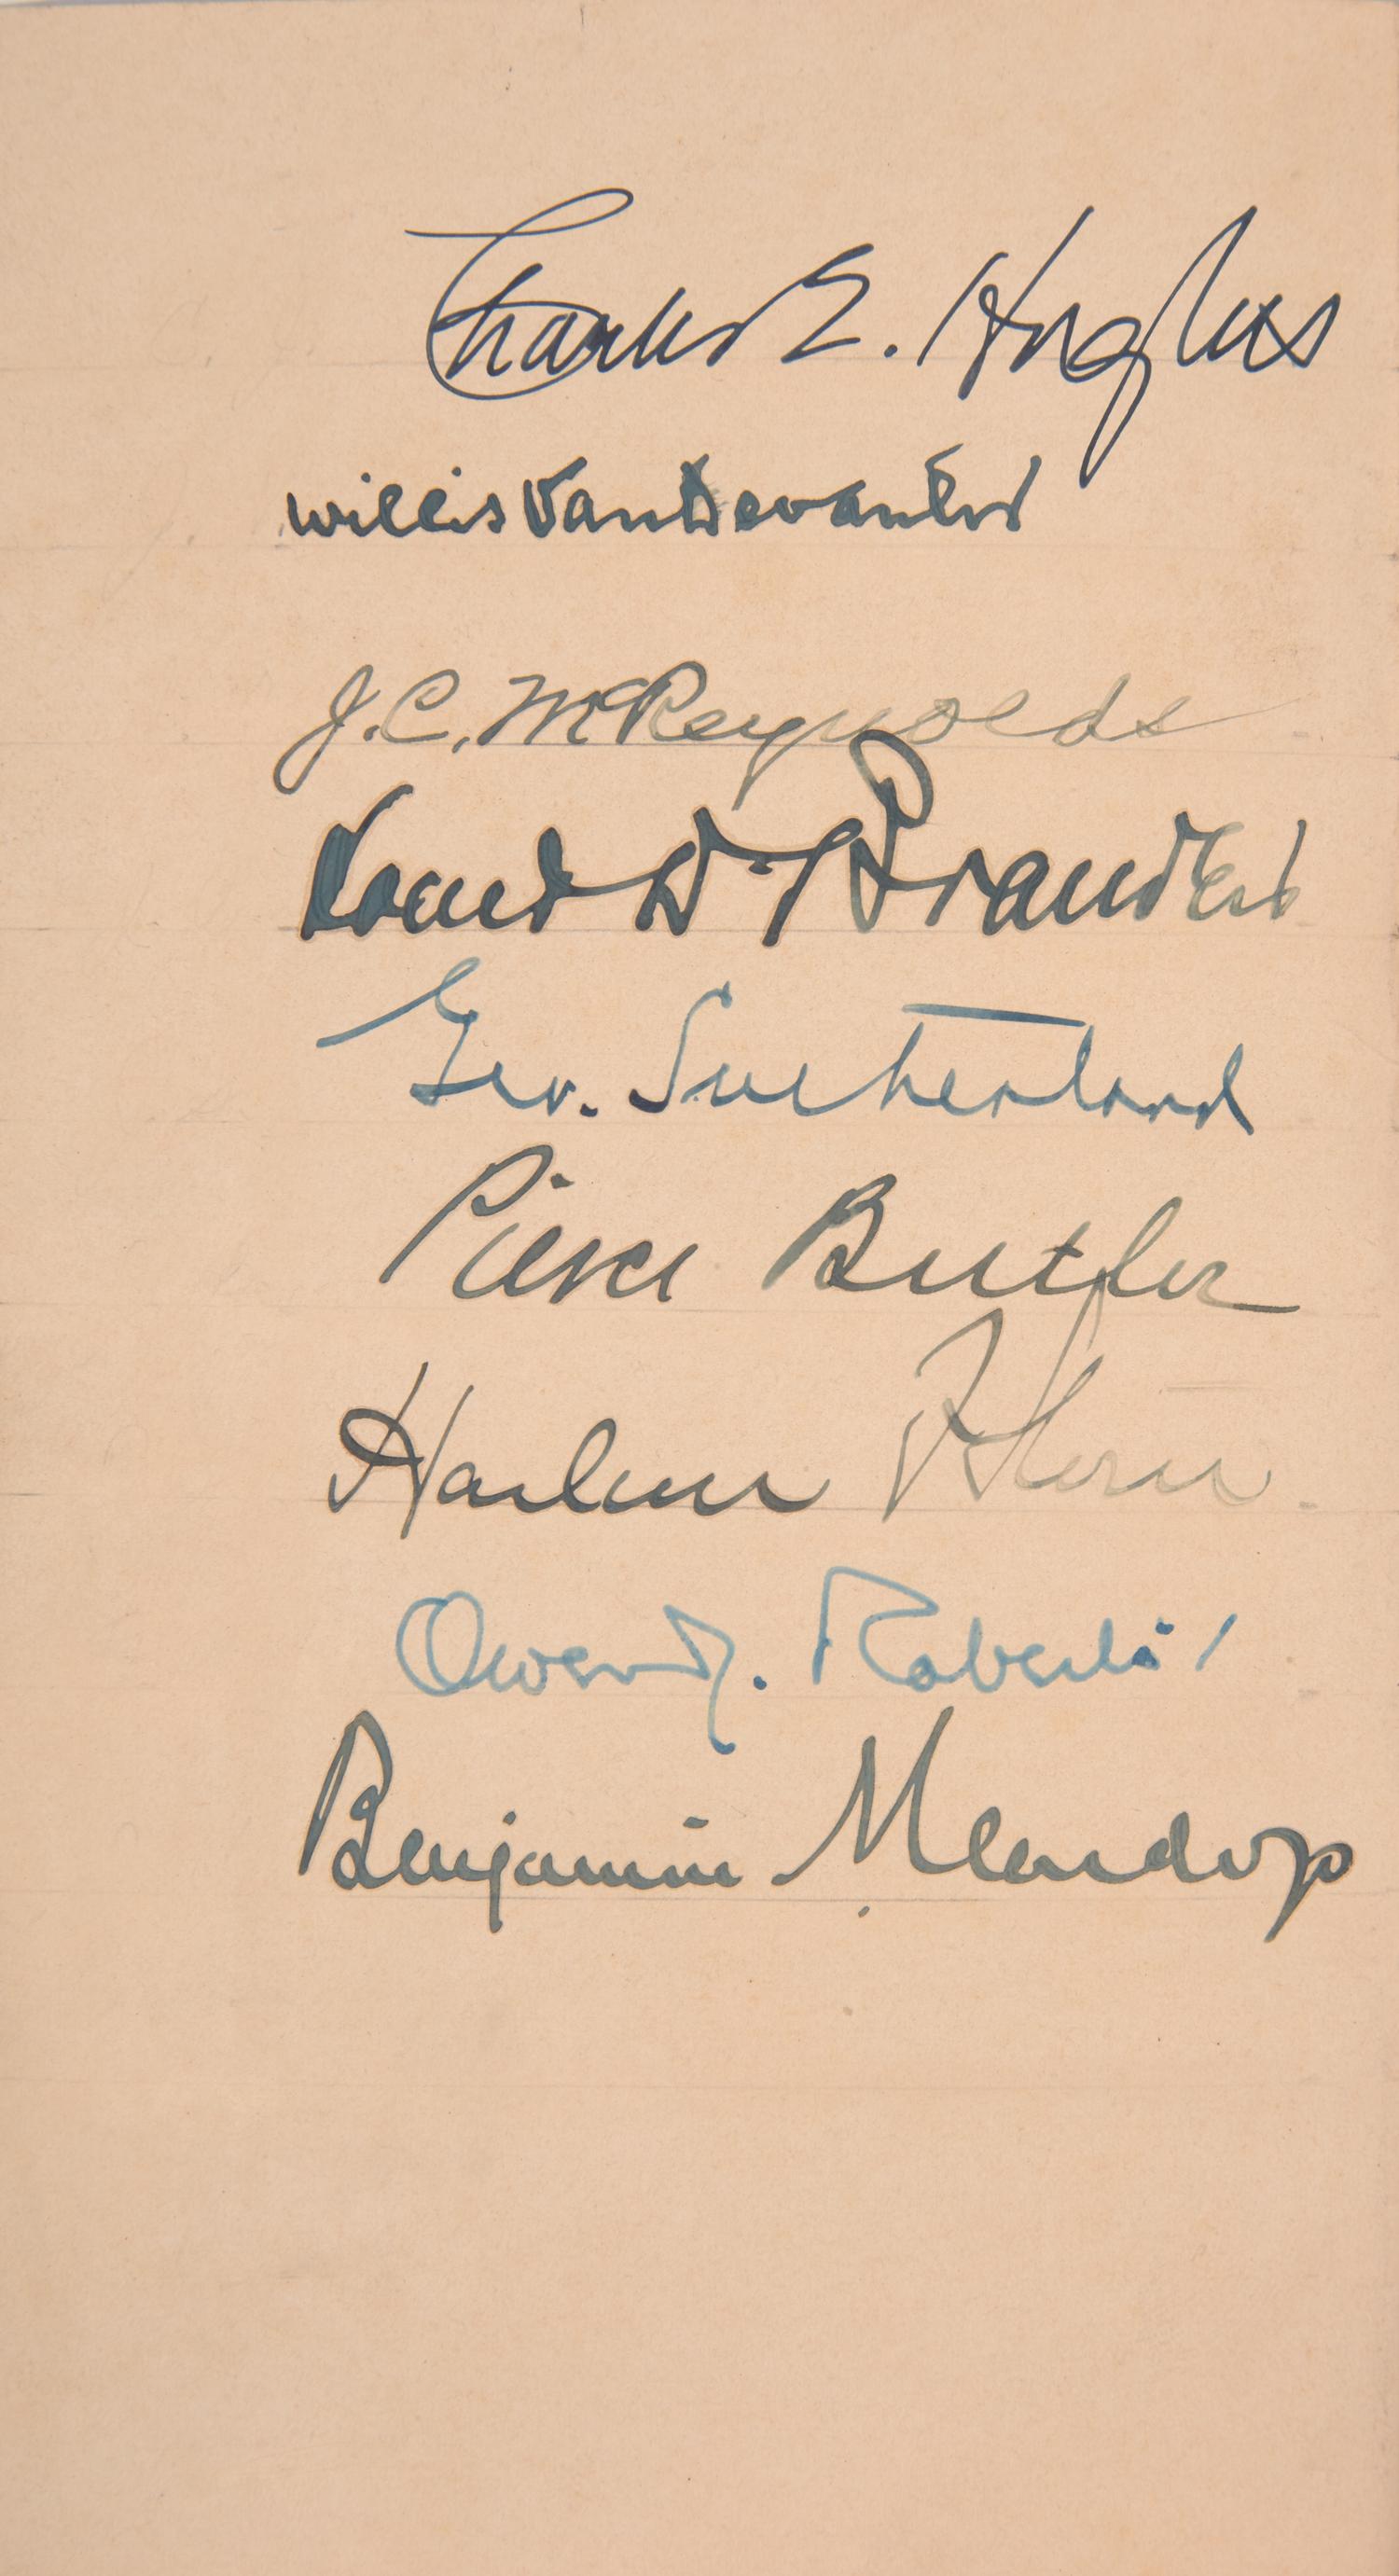 Charles E. Hughes
Willis Van Devanter
J. C. McReynolds
Louis D. Brandeis
Geo. Sutherland
Pierce Butler
Harlan F Stone
Owen J. Roberts
Benjamin N. Cardozo